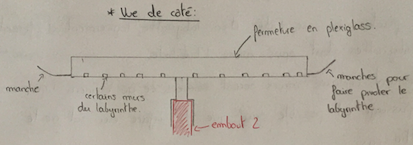 * Vue de coté:
fermeture en plexiglass.
manche
certains murs
du labyrinthe.
manches pour
faire pivoter le
labyrinthe.
embout 2